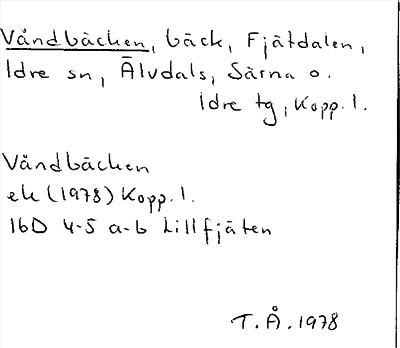 Våndbäcken, bäck, Fjätdalen,
Idre sn, Älvdals, Särna o.
Idre tg, Kopp. l.
Våndbäcken
ek (1978) Kopp. l.
16D 4-5 a-b Lillfjäten
T.Å. 1978